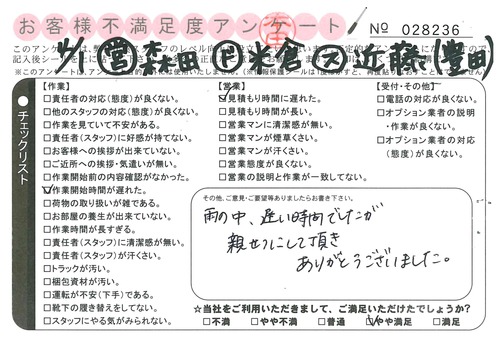 お客様不満足度アンケート
No 028236
4/1 営 森田 ド 米倉 ス 近藤(豊田)
チェックリスト
【作業】
□責任者の対応(態度)が良くない。
□他のスタッフの対応(態度)が良くない。
□作業を見ていて不安がある。
□責任者(スタッフ)に好感が持てない。
□お客様への挨拶が出来ていない。
□ご近所への挨拶・気遣いが無い。
□作業開始前の内容確認がなかった。
☑作業開始時間が遅れた。
□荷物の取り扱いが雑である。
□お部屋の養生が出来ていない。
□作業時間が長すぎる。
□責任者(スタッフ)に清潔感が無い。
□責任者(スタッフ)が汗くさい。
□トラックが汚い。
□梱包資材が汚い。
□運転が不安(下手)である。
□靴下の履き替えをしてない。
□スタッフにやる気がみられない。
【営業】
☑見積もり時間に遅れた。
□見積もり時間が長い。
□営業マンに清潔感が無い。
□営業マンが煙草くさい。
□営業マンが汗くさい。
□営業態度が良くない。
□営業の説明と作業が一致してない。
【受付・その他】
□電話の対応が良くない。
□オプション業者の説明
・作業が良くない。
□オプション業者の対応
(態度)が良くない。
その他、ご意見・ご要望等ありましたらお書き下さい。
雨の中、遅い時間でしたが
親切にして頂き
ありがとうございました。
☆当社をご利用いただきまして、ご満足いただけたでしょうか?
□不満 □やや不満 □普通 ☑やや満足 □満足